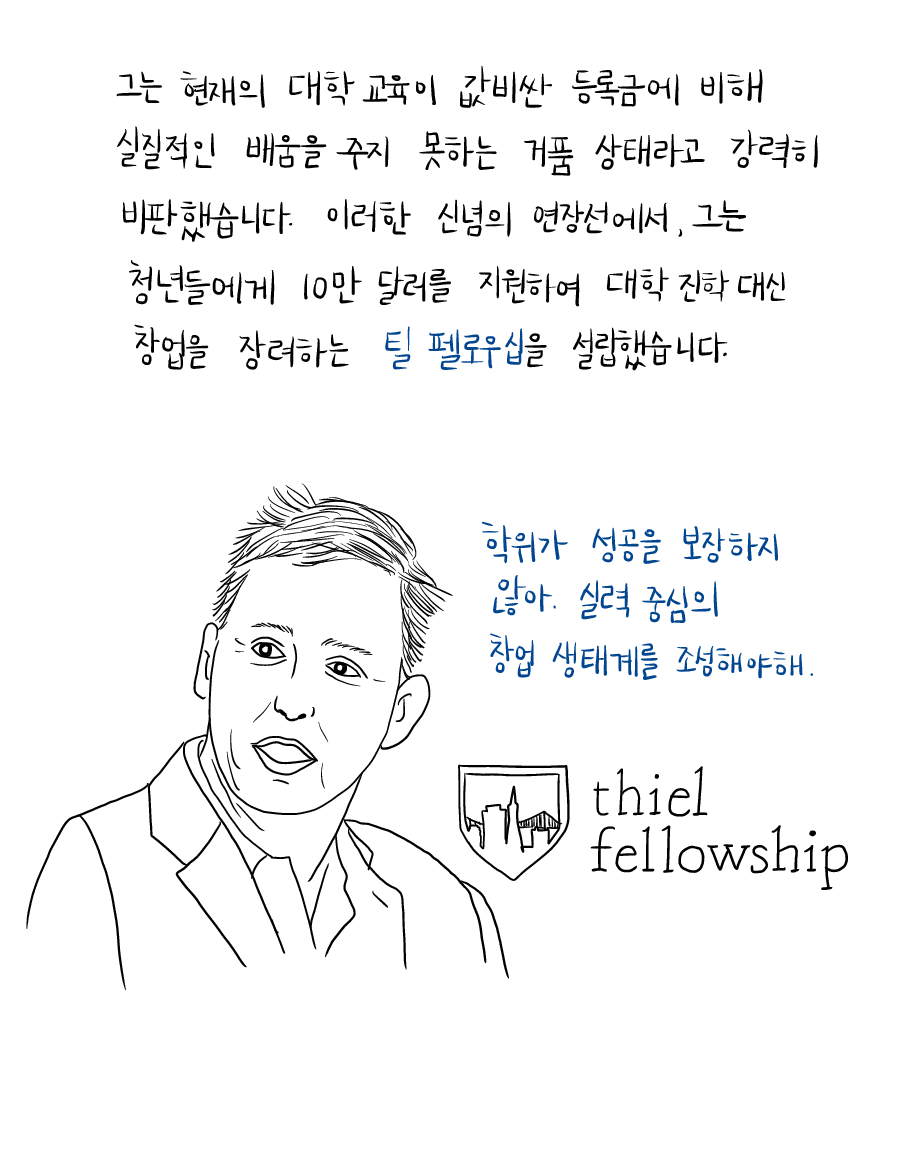 그는 현재의 대학 교육이 값비싼 등록금에 비해
실질적인 배움을 주지 못하는 거품 상태라고 강력히
비판했습니다. 이러한 신념의 연장선에서, 그는
청년들에게 10만 달러를 지원하여 대학 진학 대신
창업을 장려하는 틸 펠로우십을 설립했습니다.
학위가 성공을 보장하지
않아. 실력 중심의
창업 생태계를 조성해야해.
thiel
fellowship